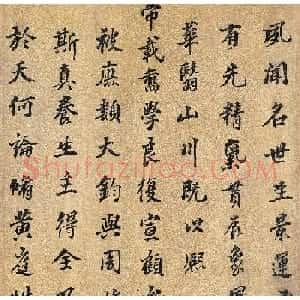 夙聞名世生景運
有先精氣貫辰象
華翳山川既以熙
帝載奮學良復宣顧
被庶類大鈞與周
斯真養生主得全
於天何論脩黄庭